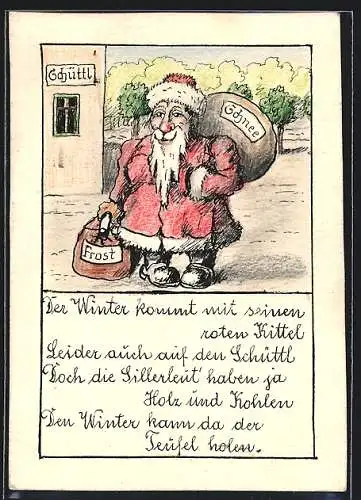 Schüttl
Schnee
Frost
Der Winter kommt mit seinen
roten Kittel
Leider auch auf den Schüttl
Doch die Sillerleut' haben ja
Holz und Kohlen
Den Winter kann da der
Teufel holen.